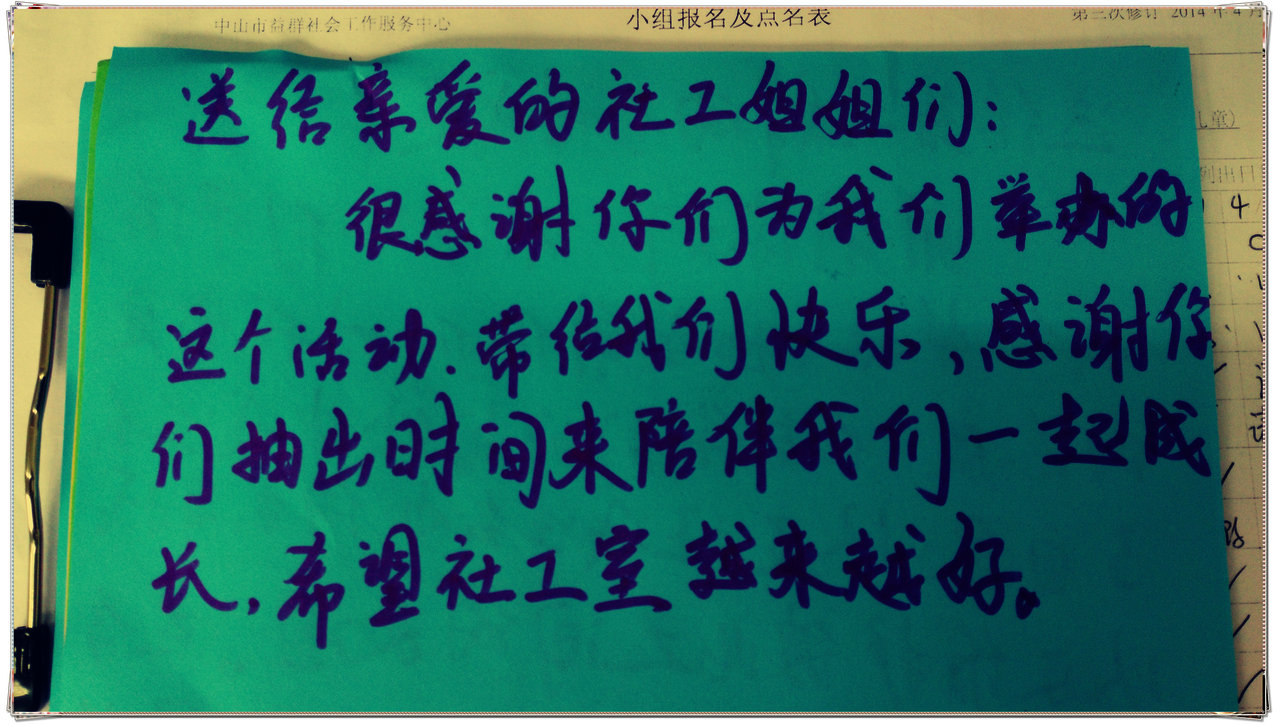 中山市益群社会工作服务中心
小组报名及点名表
第三次修订 2014 年 4 月
送给亲爱的社工姐姐们：
很感谢你们为我们举办的
这个活动.带给我们快乐，感谢你
们抽出时间来陪伴我们一起成
长，希望社工室越来越好。
儿童）
4